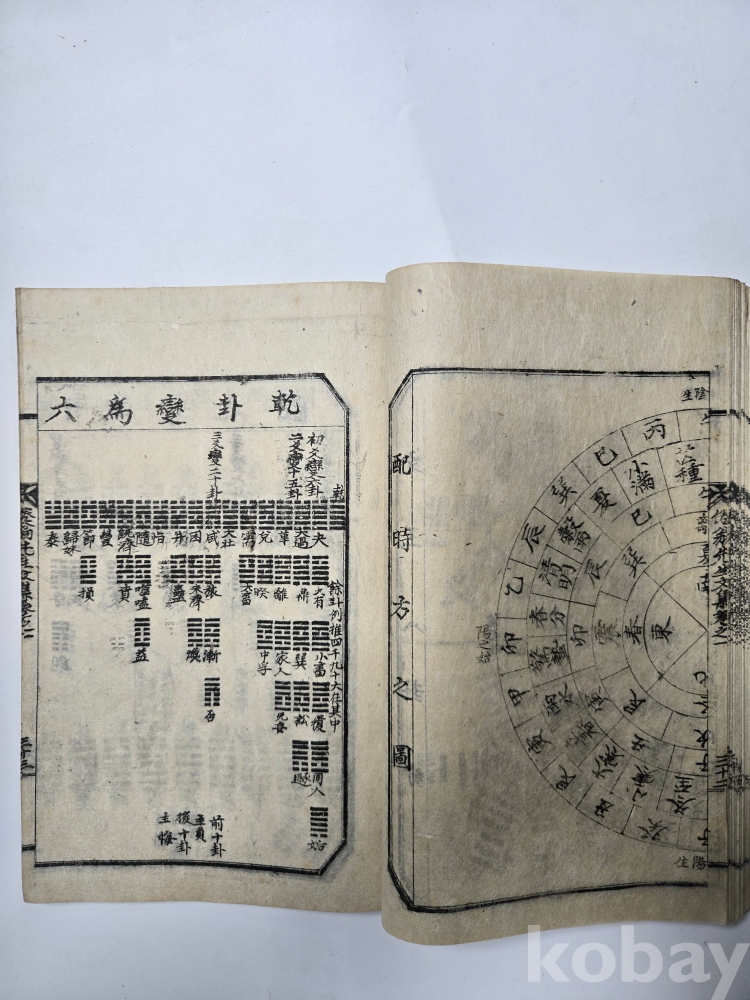 陰生
午
丙
巳
巽
辰
乙
卯
甲
艮
癸
子
陽生
芒種
小滿
夏
清明
春分
驚蟄
大寒
小寒
冬至
巳
巽
辰
卯
震
春
東
三十二
配時方之圖
乾卦變爲六
初爻變六卦
二爻變十五卦
三爻變二十卦
乾
夬 大過 革 兌 需 大壯 咸 困 井 恒 隨 旣濟 豐 節 歸妹 泰
大有 鼎 離 睽 大畜 旅 未濟 蠱 噬嗑 賁 損
小畜 巽 家人 中孚 漸 渙 益
履 訟 无妄 否
同人 遯
姤
餘卦例推四千九十六在其中
前十卦
主貞
後十卦
主悔
kobay